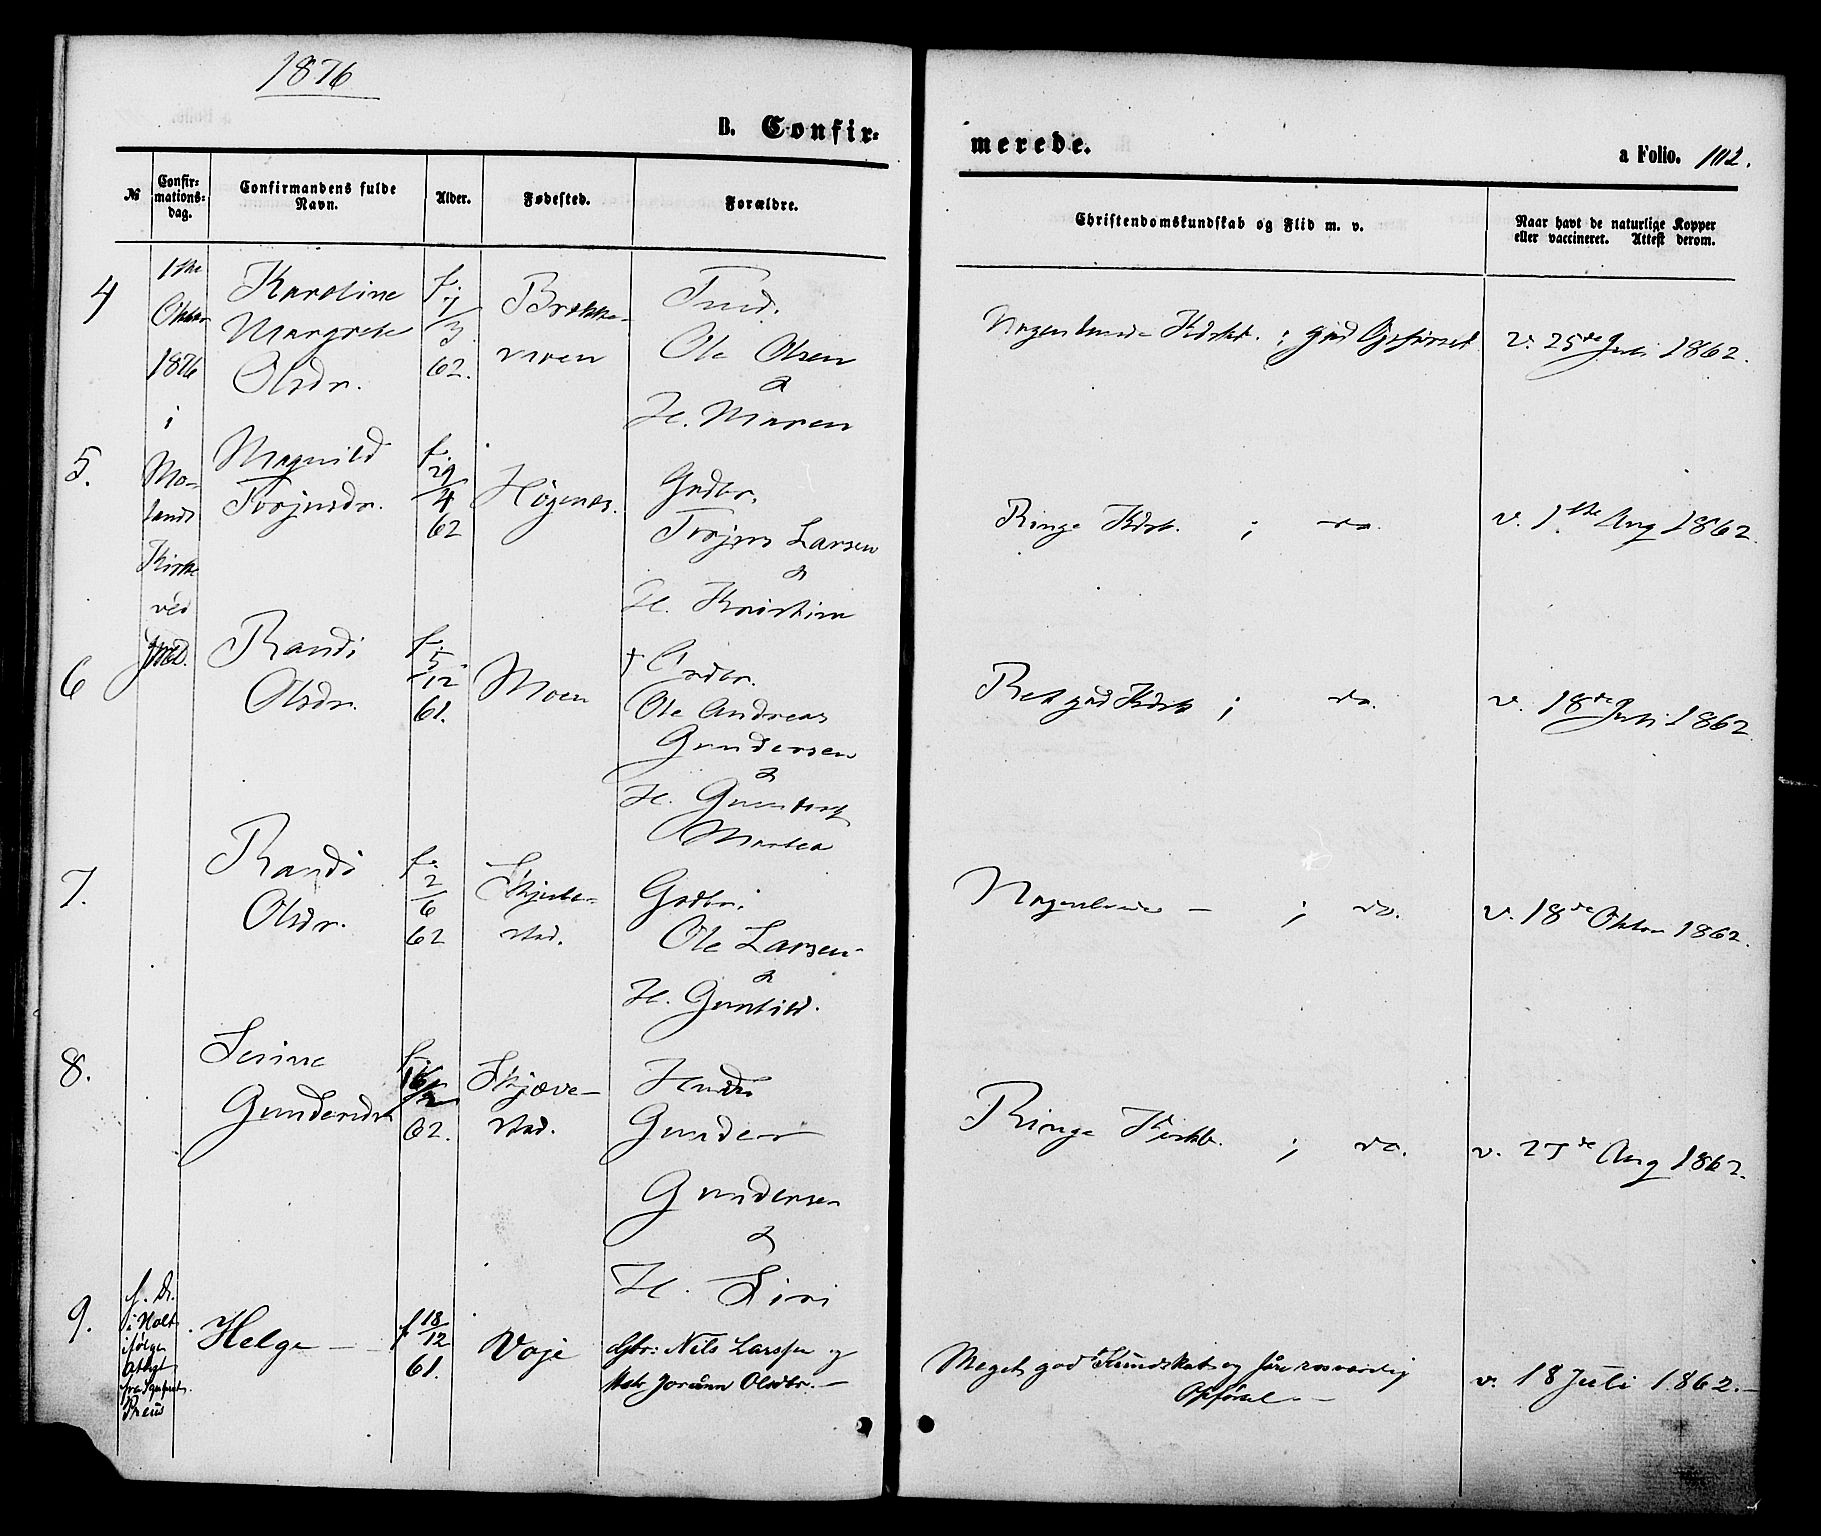 1876
B. Confir-
merede.
a Folio. 102.
№
Confir-
mations-
dag.
Confirmandens fulde
Navn.
Alder.
Fødested.
Forældre.
Christendomskundskab og Flid m. v.
Naar havt de naturlige Kopper
eller vaccineret. Attest derom.
1ste
Oktbr
1876
i
Mo-
lands
Kirke
ved
4
Karoline
Margrethe
Olsdr.
f.
7/3
62.
Ole Olsen
&
H. Maren
v. 25de Juli 1862.
5.
Magnild
Torjusdr.
f.
29/4
62
Høgenes.
Grdbr.
Torjus Larsen
&
H. Kristine
Ringe Kdsk. ; do.
v. 1ste Aug 1862.
6
Randi
Olsdr.
f.
5/12
61.
Moen
† Grdbr.
Ole Andreas
Gundersen
&
H.
Ret god Kdsk ; do.
v. 18de Juli 1862.
7.
Randi
Olsdr.
f.
2/6
62
Grdbr.
Ole Larsen
&
H. Gunhild.
Nogenlunde – ; do.
v. 18de Oktbr 1862.
8.
Serine
Gundersdr
f.
62.
Skjæve-
stad.
Gunder
Gundersen
&
H. Siri
Ringe ; do.
v. 25de Aug 1862.
9.
i Holt
ifølge
Attest
Preus
Helge
f 18/12
61.
Voje
Nils Larssen og
Jorünn Olsdtr. –
Meget god Kundskab og
Opførsel. –
v. 18 Juli 1862. –